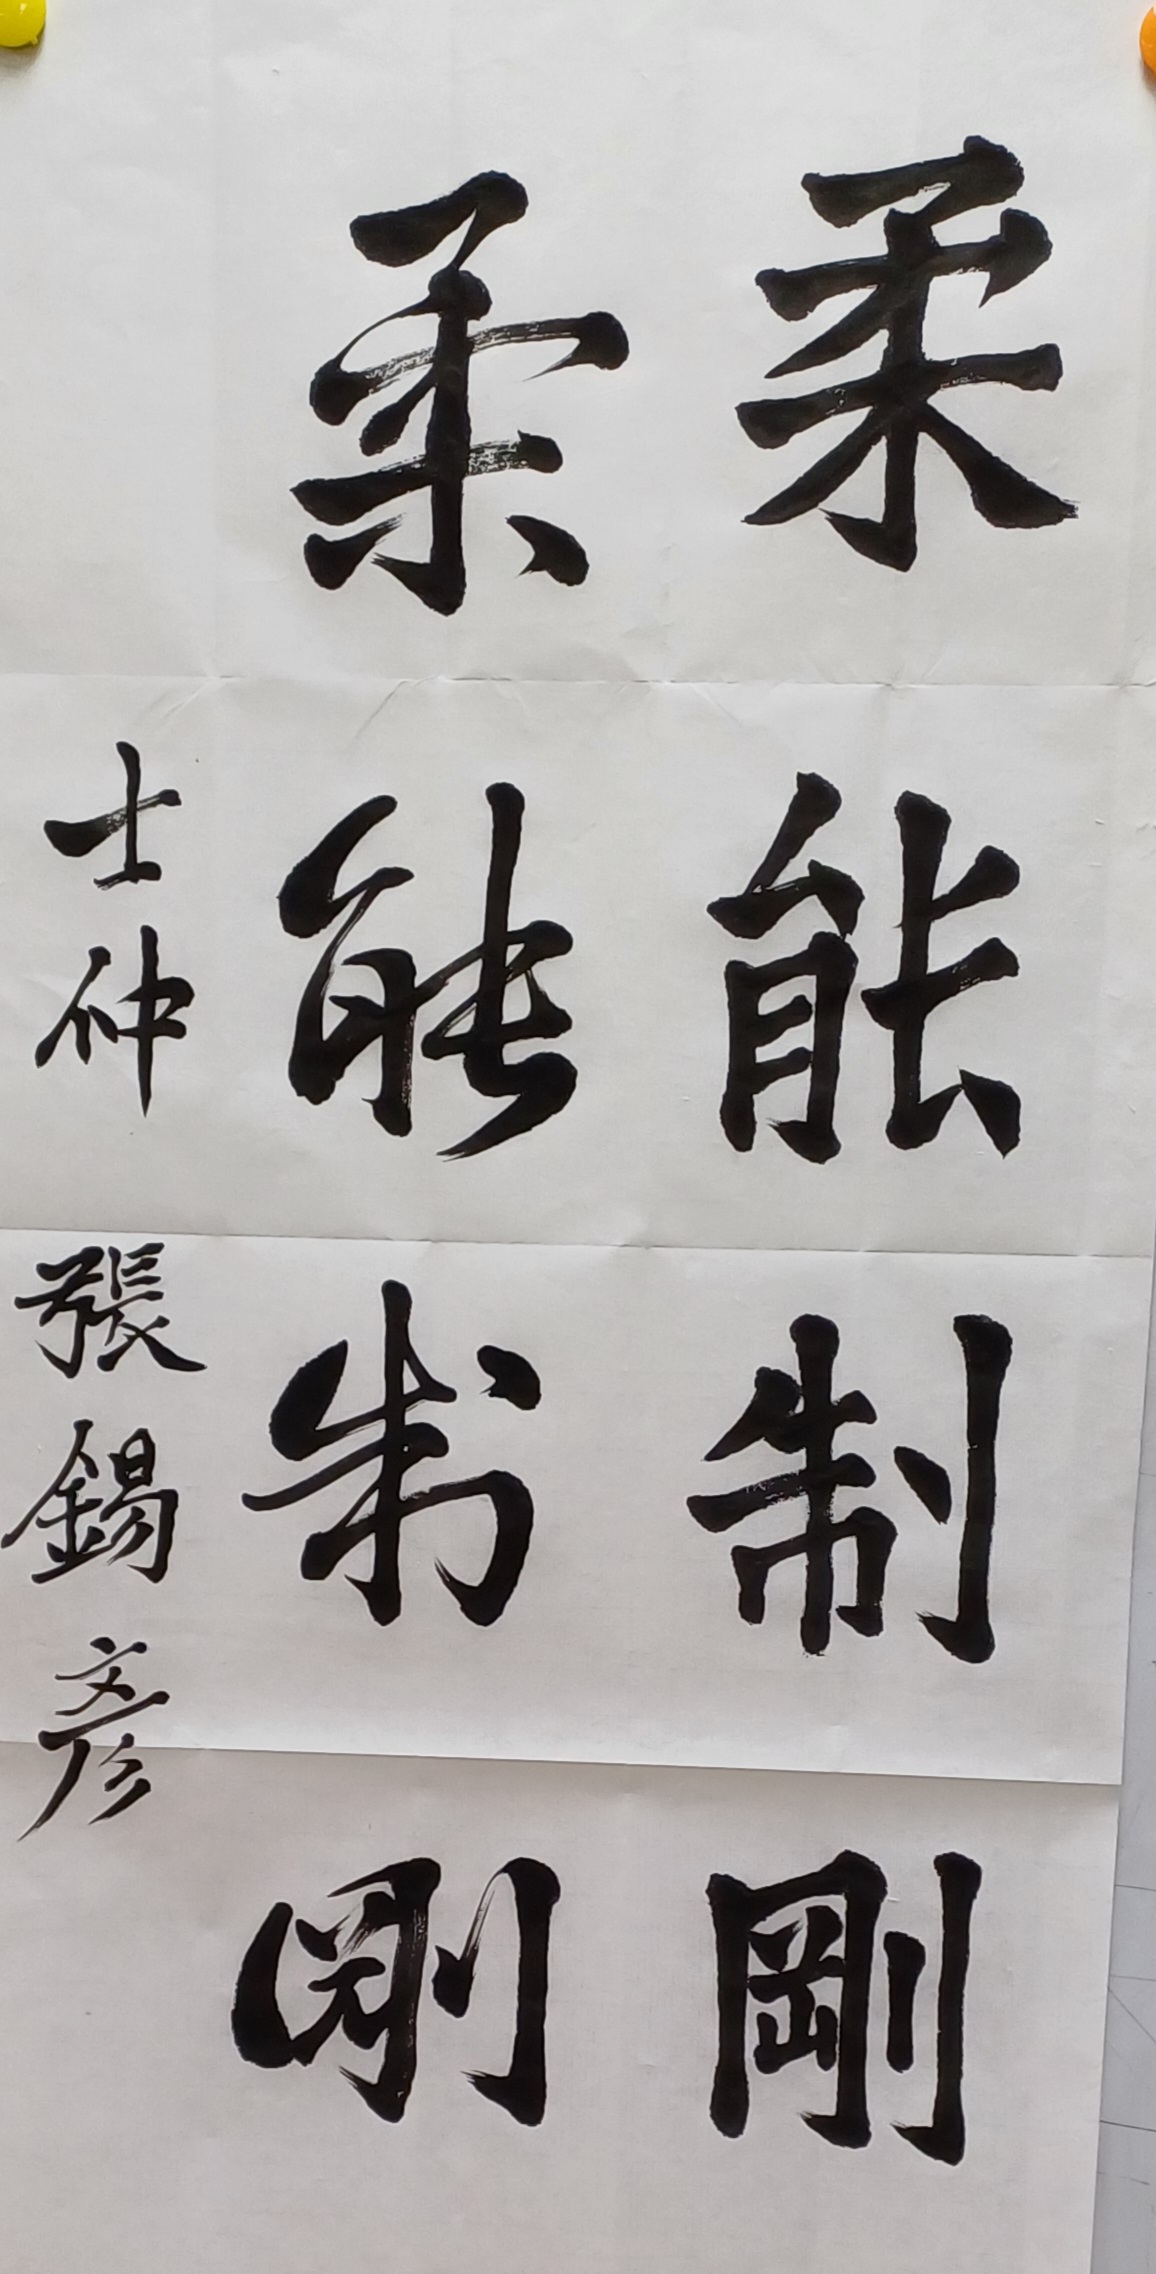 柔能制剛
柔能制剛
士仲 張錫彥